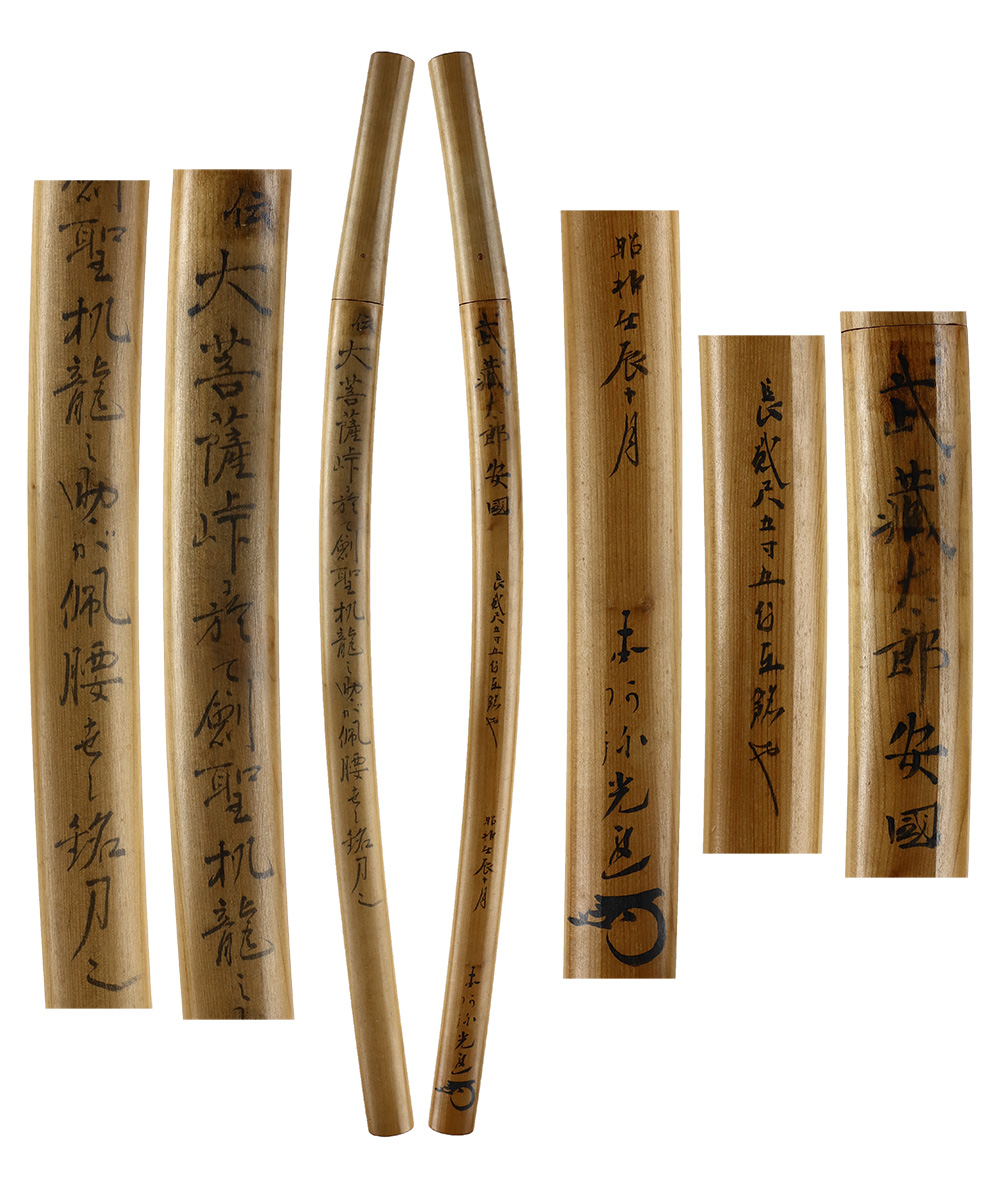 武藏太郎安國
長貳尺五寸五分在銘也
昭和壬辰十月
本阿弥光遜
武藏太郎安國
長貳尺五寸五分在銘也
昭和壬辰十月
本阿弥光遜
伝大菩薩峠ニ於て劍聖机龍之助が佩腰せし銘刀之
伝大菩薩峠ニ於て劍聖机龍之
劍聖机龍之助が佩腰せし銘刀之